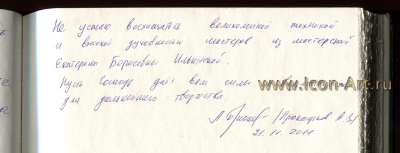 Не устаю восхищаться великолепной техникой
и высокой духовностью мастеров из мастерской
Екатерины Борисовны Ильинской.
Пусть Господь даёт вам силы
для дальнейшего творчества
www.Icon-Art.ru
21.11.2011